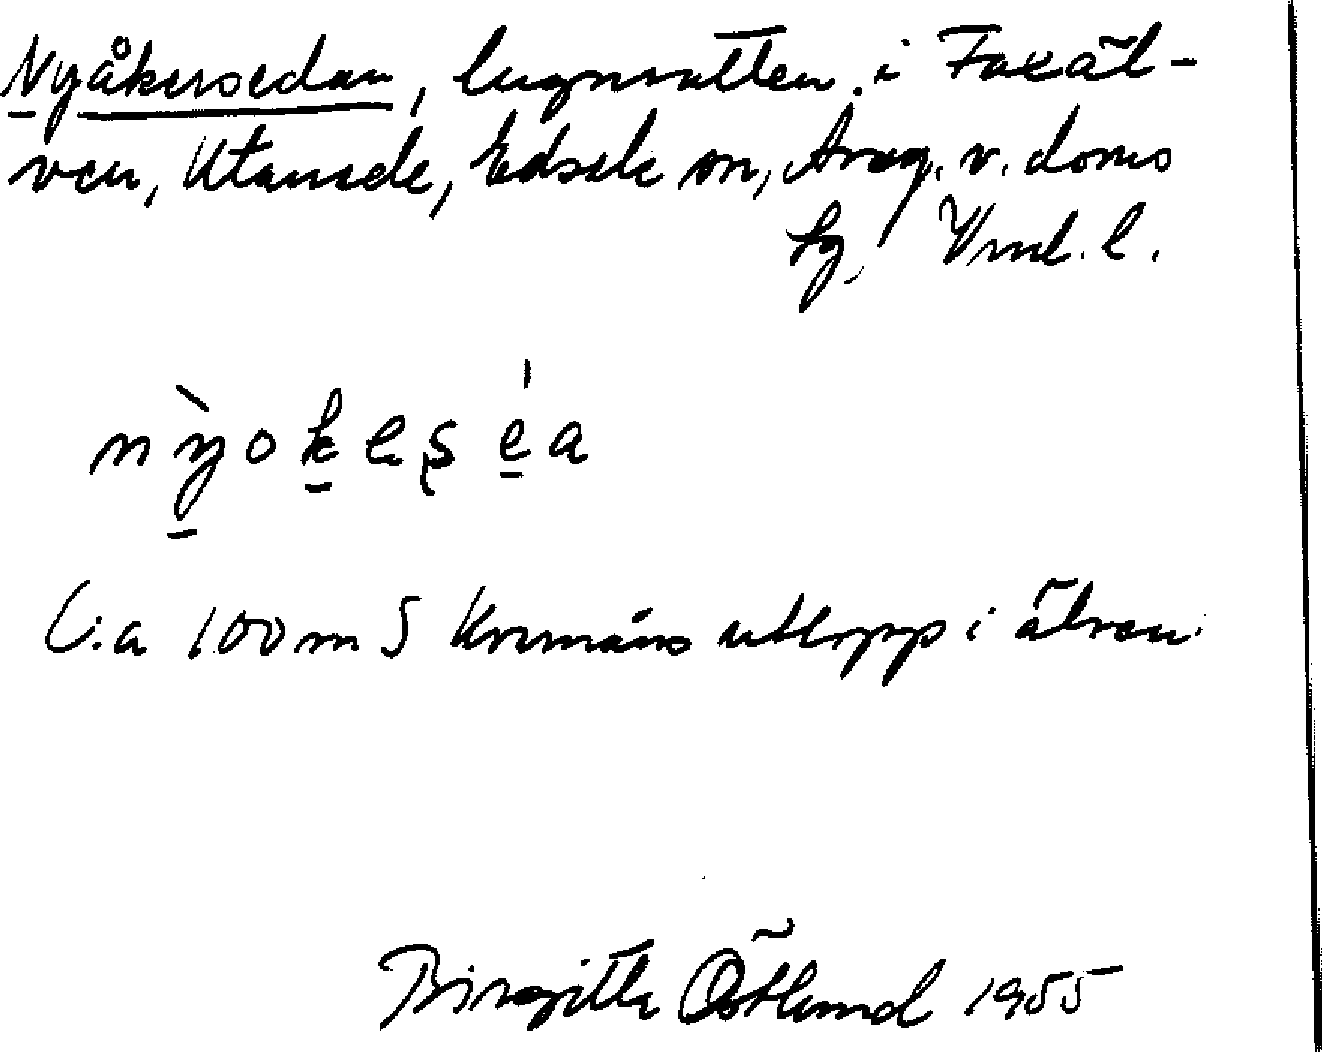 Nyåkersedan, lugnvatten i Faxäl-
ven, Utanede, Edsele sn, Ång. v. doms
sg, Vnrl. l.
nỳokesea
C:a 100 m S Krumåns utlopp i älven.
Birgitta Östlund 1955